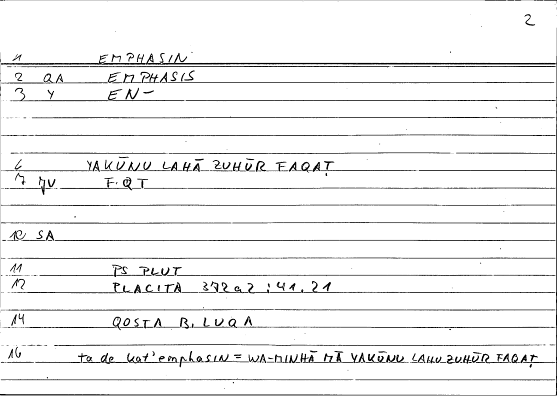 2
1 EMPHASIN
2 QA EMPHASIS
3 Y EN-
6 YAKŪNU LAHĀ ZUHŪR FAQAṬ
7 F.QṬ
10 SA
11 PS PLUT
12 PLACITA 372a2 : 41.21
14 QOSTA B. LUQA
16 ta de kat'emphasin = WA-MINHĀ MĀ YAKŪNU LAHU ZUHŪR FAQAṬ